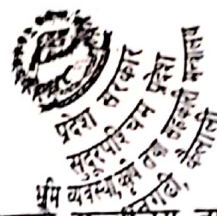 प्रदेश सरकार
सुदूरपश्चिम प्रदेश
भूमि व्यवस्था, कृषि तथा सहकारी मन्त्रालय
कैलाली